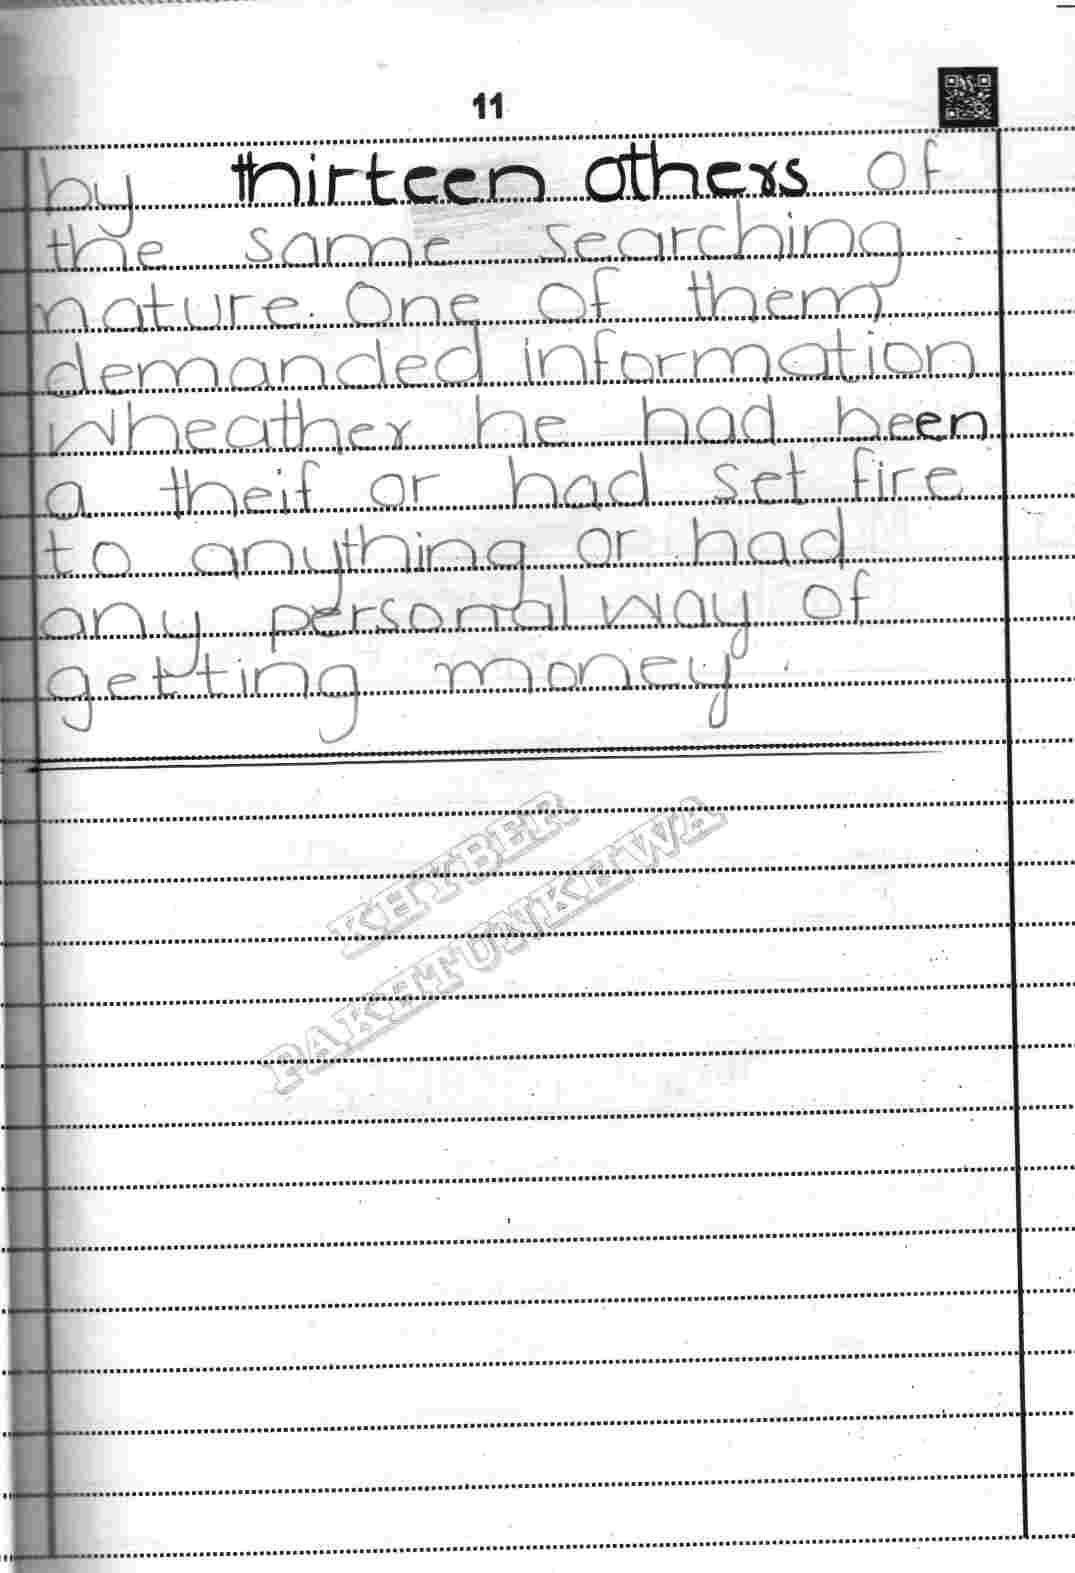 11
by thirteen others of
the same searching
nature. One of them
demanded information
wheather he had been
a theif or had set fire
to anything or had
any personal way of
getting money.
KHYBER
PAKHTUNKHWA